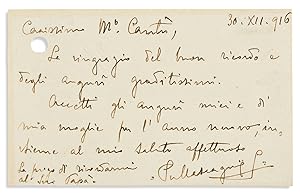 30. XII. 916
Carissimo M.º Cantù,
La ringrazio del buon ricordo e
degli auguri graditissimi.
Accetti gli auguri miei e di
mia moglie per l'anno nuovo, in-
sieme al mio saluto affettuoso
La prego di ricordarmi
al suo Papà.